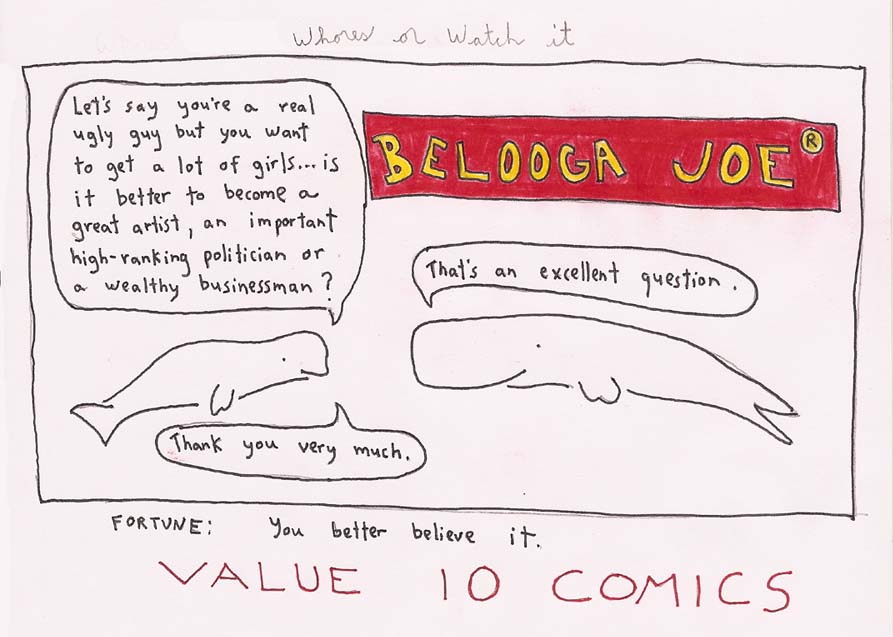 Whores or Watch it
Let's say you're a real
ugly guy but you want
to get a lot of girls...is
it better to become a
great artist, an important
high-ranking politician or
a wealthy businessman?
BELOOGA JOE®
That's an excellent question.
Thank you very much.
FORTUNE: You better believe it.
VALUE 10 COMICS